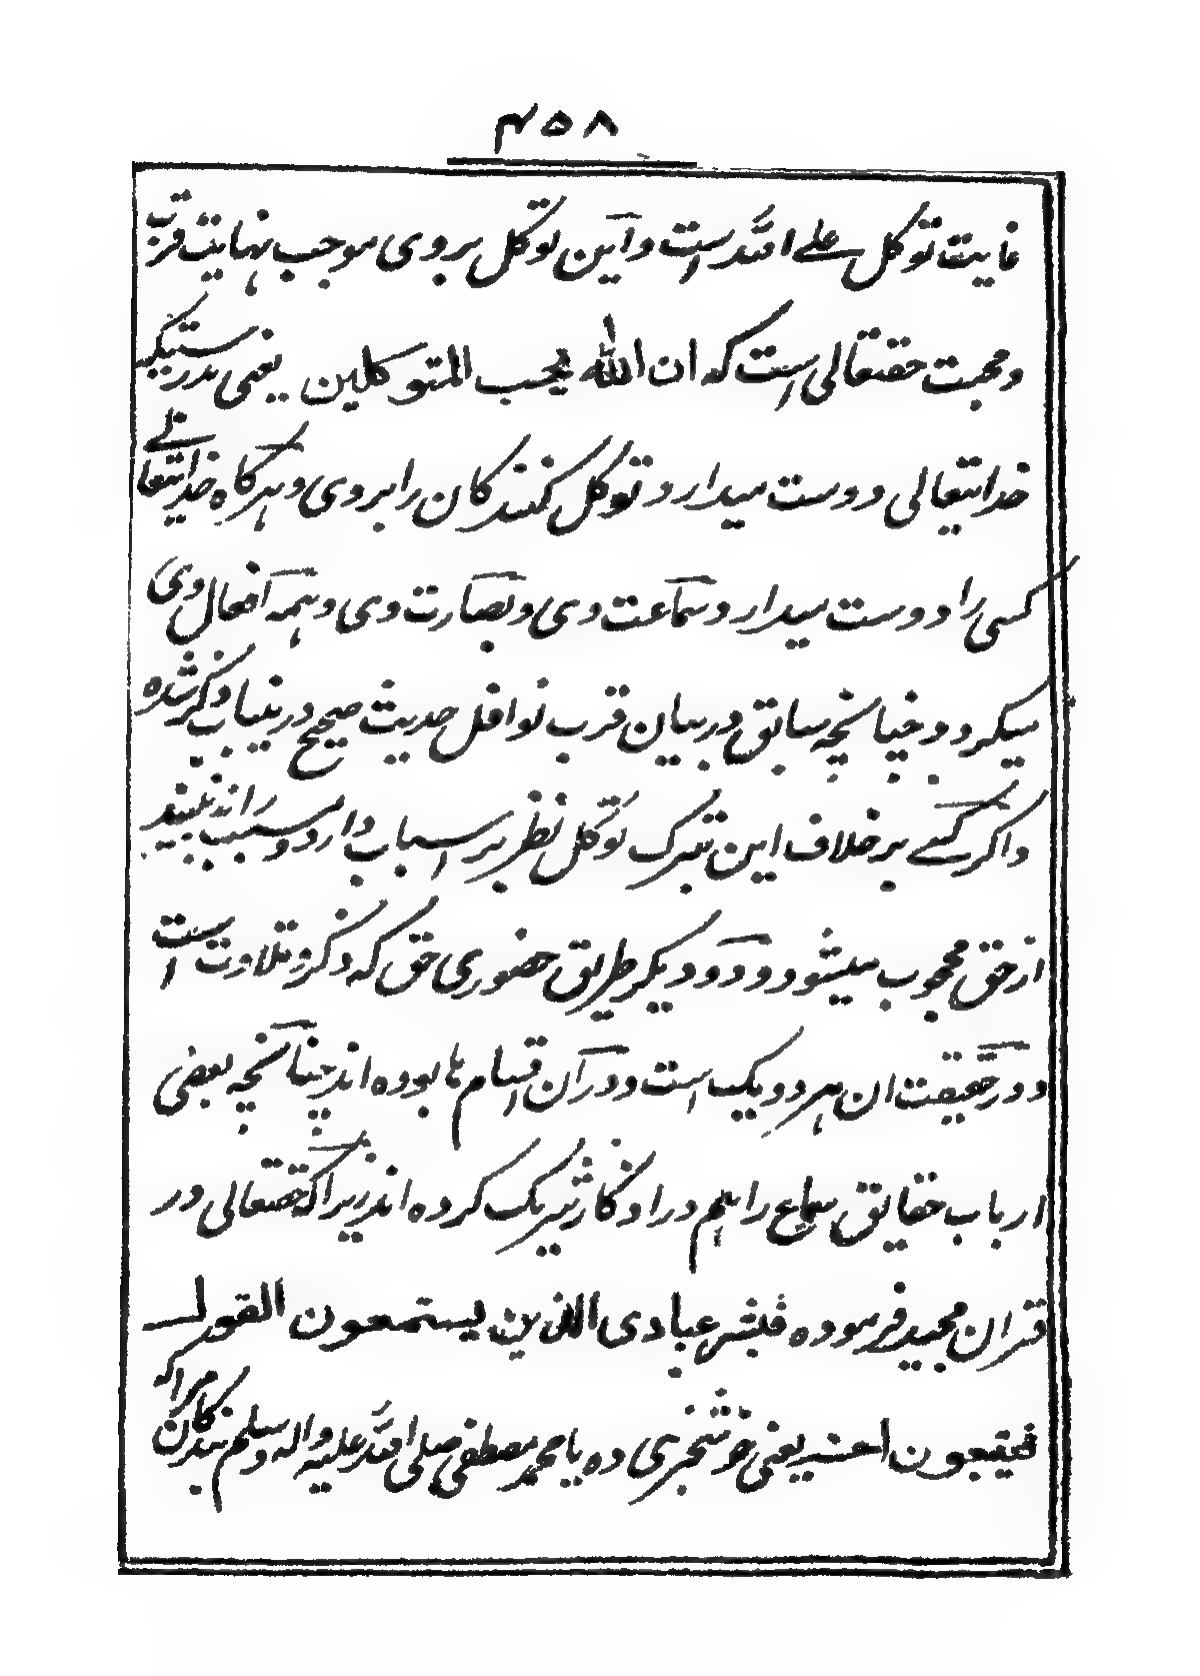 ۴۵۸
غایت توکل علے اللہ است و این توکل بروی موجب نهایت قرب
و محبت حقتعالی است که ان الله یحب المتوکلین یعنی بدرستیکه
خدایتعالی دوست میدارد توکل کنندکان را بروی و هرکاه خدایتعالے
کسی را دوست میدارد سماعت وی و بصارت وی و همه افعال وی
میکردد چنانچه سابق در بیان قرب نوافل حدیث صحیح درینباب ذکر شده
و اکر کسے بر خلاف این بترک توکل نظر بر اسباب دارد و مسبب را نه بیند
از حق محجوب میشود و دیکر طریق حضوری حق که ذکر و تلاوت است
و در حقیقت ان هر دو یک است و در آن قسام ها بوده اند چنانچه بعضی
ارباب حقایق سماع را هم در اذکار شریک کرده اند زیرا که حقتعالی در
قران مجید فرموده فبشر عبادی الذین یستمعون القول
فیتبعون احسنه یعنی خوشخبری ده یا محمد مصطفی صلی الله علیه و اله وسلم بندکان مرا که